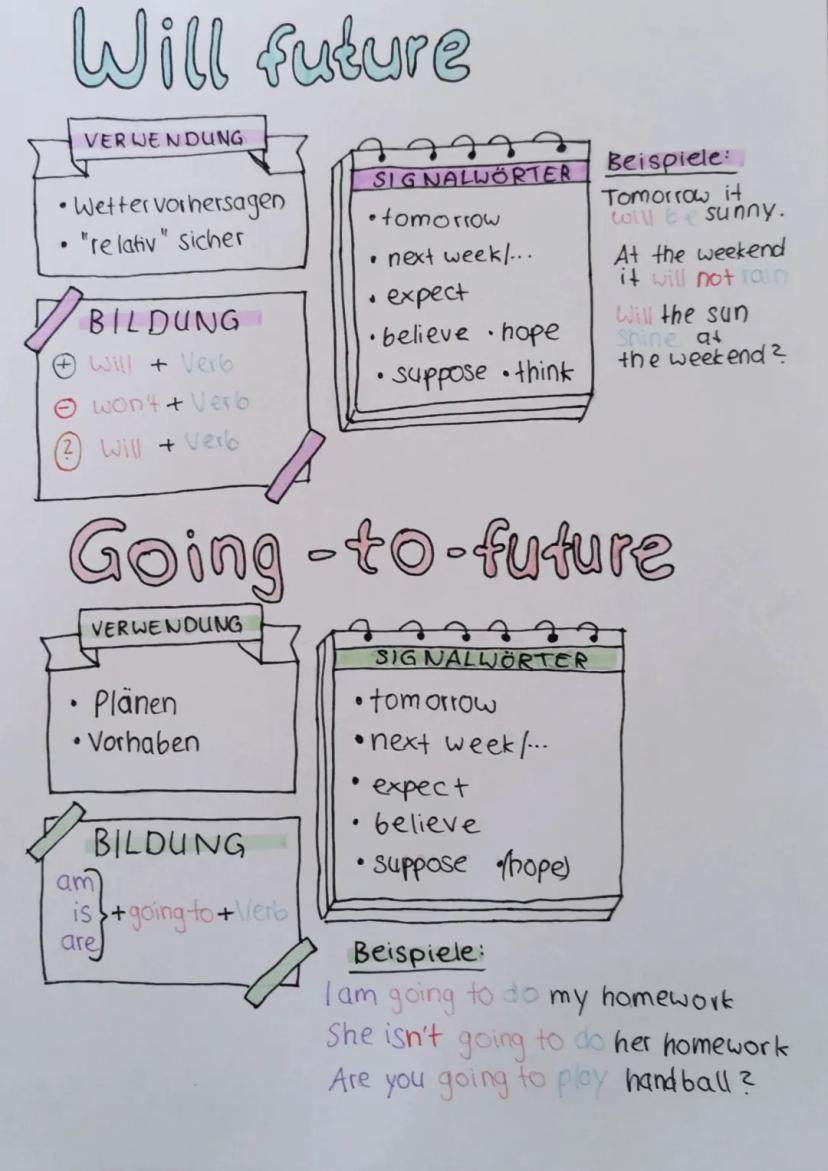 Will future
VERWENDUNG
• Wettervorhersagen
• "relativ" sicher
BILDUNG
+ Will + Verb
- won't + Verb
? Will + Verb
SIGNALWÖRTER
• tomorrow
• next week/...
• expect
• believe • hope
• suppose • think
Beispiele:
Tomorrow it
will be sunny.
At the weekend
it will not rain
Will the sun
shine at
the weekend?
Going-to-future
VERWENDUNG
• Plänen
• Vorhaben
BILDUNG
am
is
are
+ going to + Verb
SIGNALWÖRTER
• tomorrow
• next week/...
• expect
• believe
• suppose • (hope)
Beispiele:
I am going to do my homework
She isn't going to do her homework
Are you going to play handball?